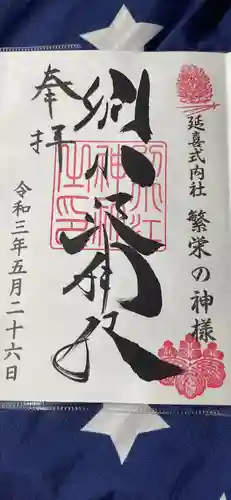 延喜式内社 繁栄の神様
別小江神社
奉拝
令和三年五月二十六日